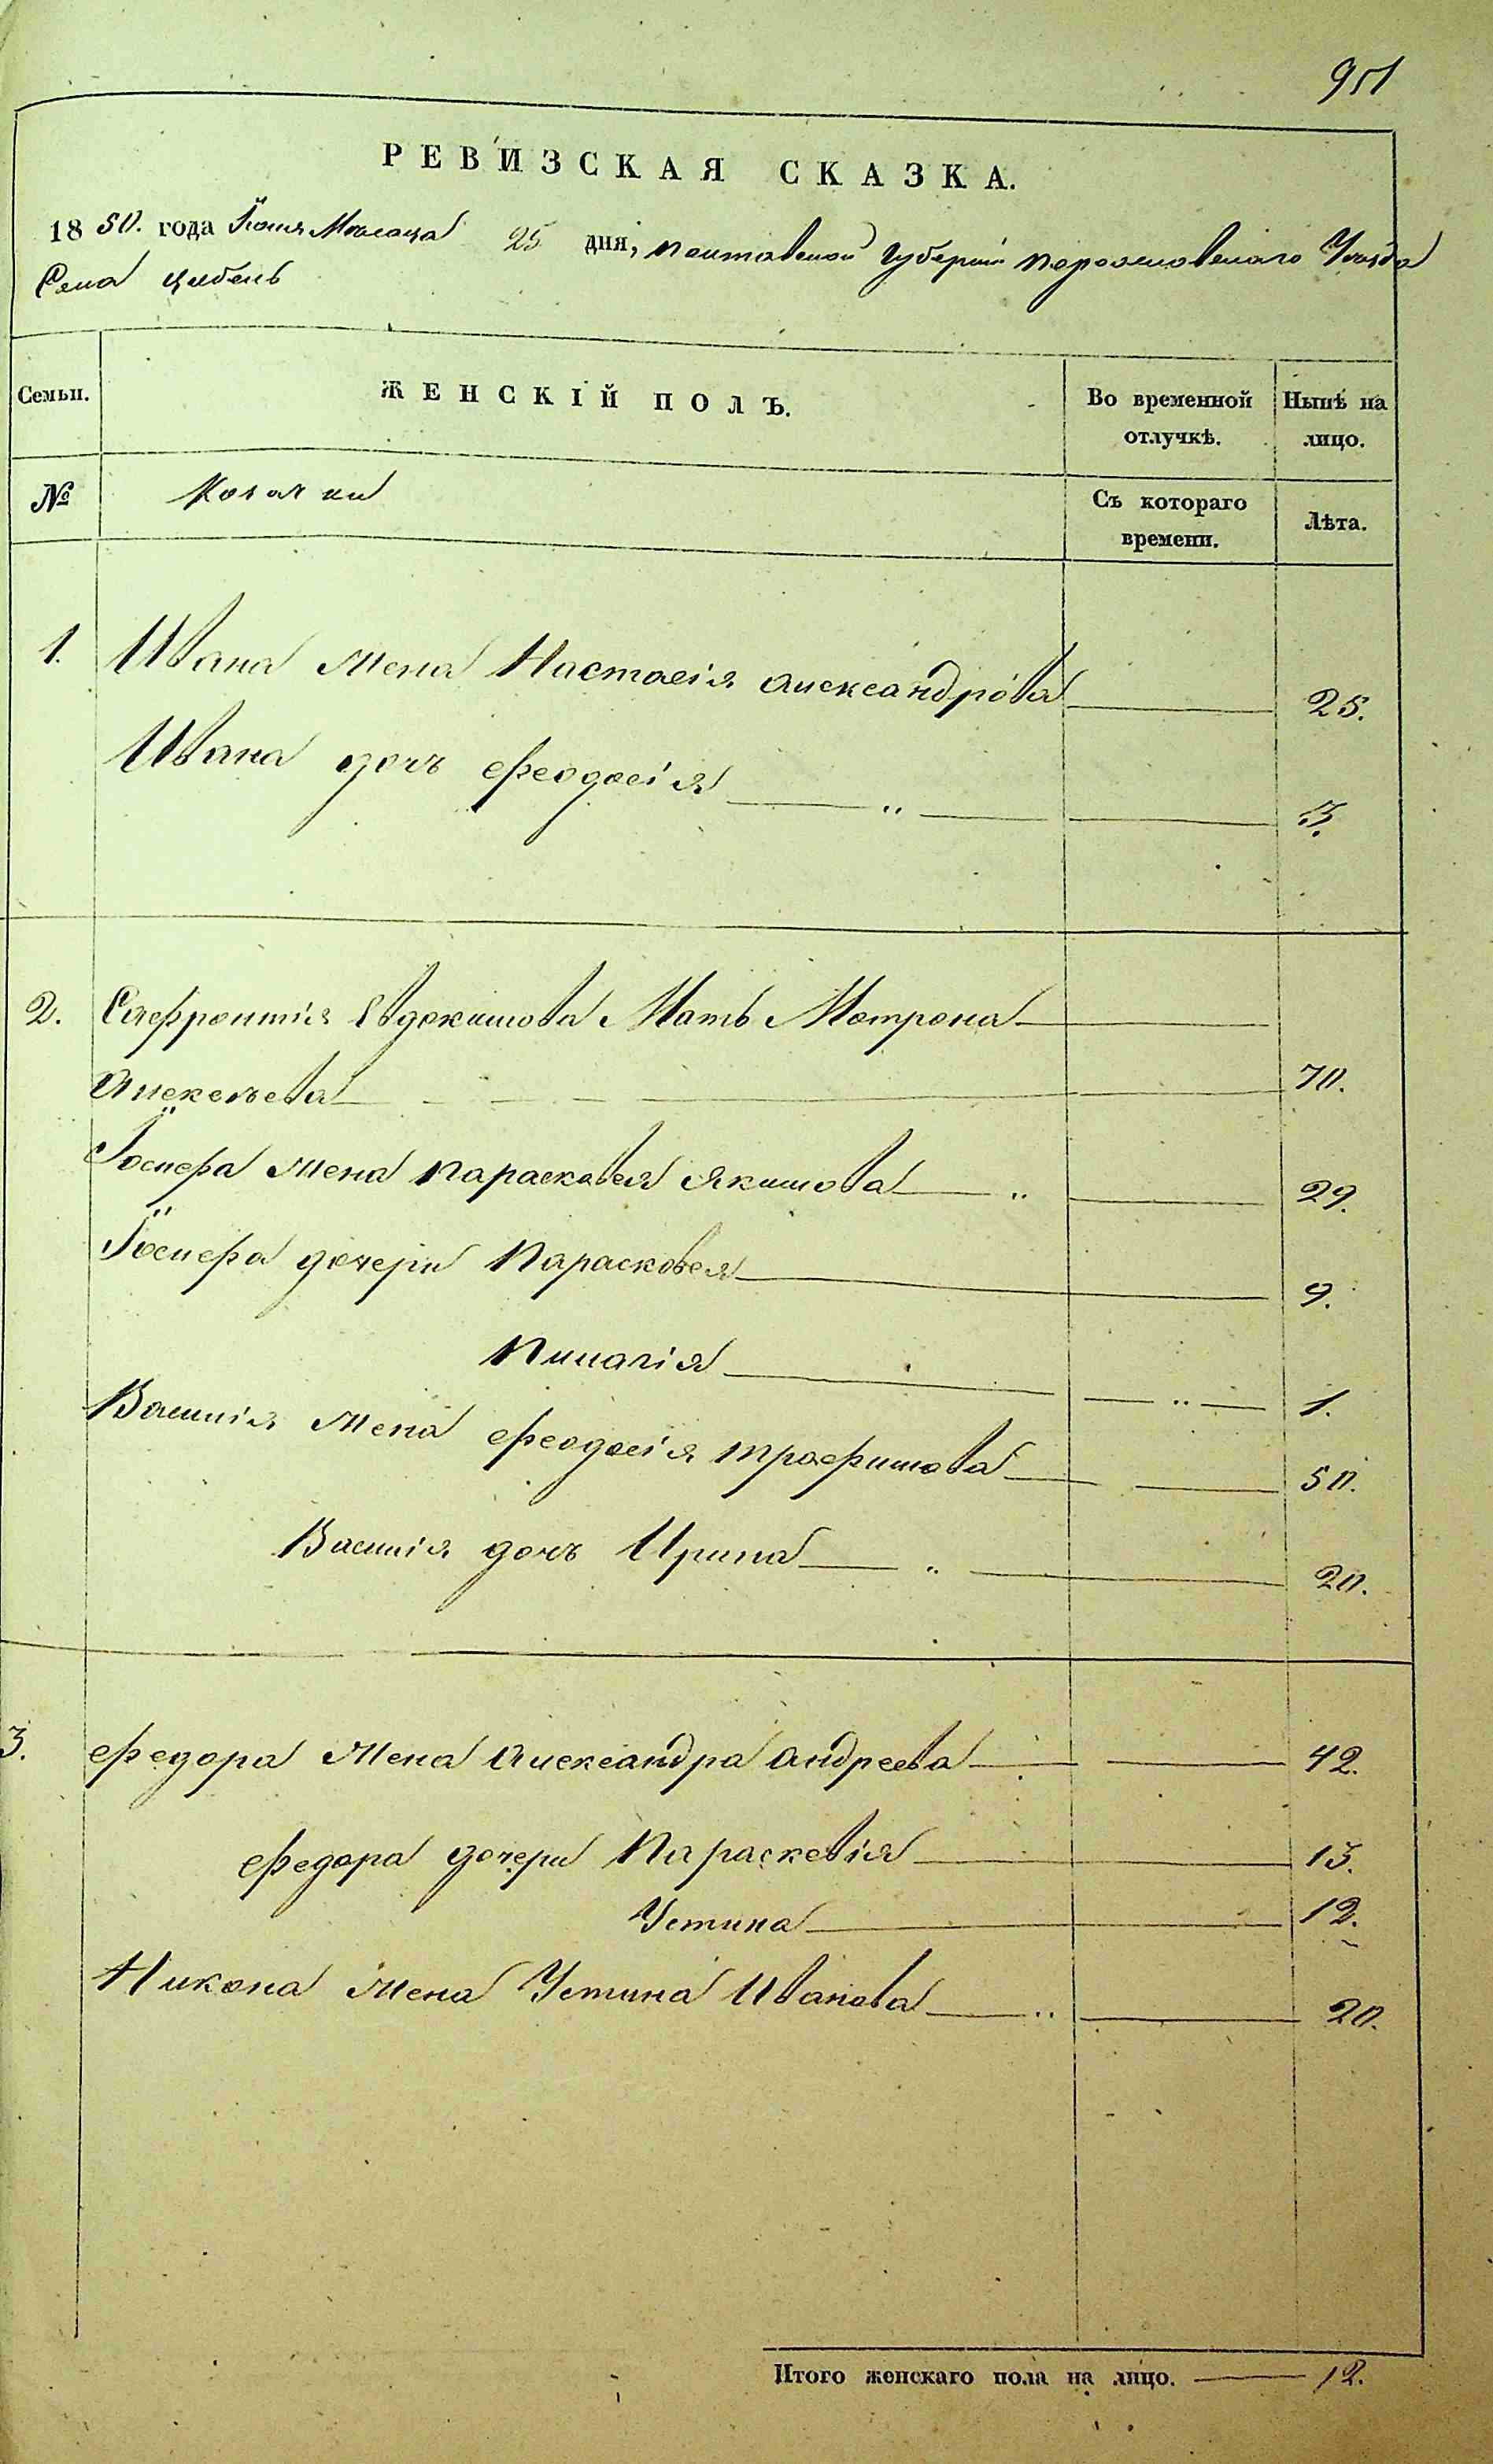 951
РЕВИЗСКАЯ СКАЗКА.
18 50. года Іюня Месяца 25 дня, Полтавской Губерніи Переяславскаго Уезда
Села Цибель
Семьи. ЖЕНСКІЙ ПОЛЪ. Во временной отлучкѣ. Нынѣ на лицо.
№ Козачки Съ котораго времени. Лѣта.
1. Ивана Жена Настасія Александрова 25.
Ивана дочь Феодосія " 3.
2. Сафронтія Евдокимова Мать Мотрона
Алексеева 70.
Іосифа Жена Парасковея Якимова " 29.
Іосифа дочери Парасковея 9.
Пилагія " 1.
Василія Жена Феодосія Трофимова 50.
Василія дочь Ирина " 20.
3. Федора Жена Александра Андреева 42.
Федора дочери Параскевія 13.
Устина 12.
Никона Жена Устина Иванова " 20.
Итого женскаго пола на лицо. 12.